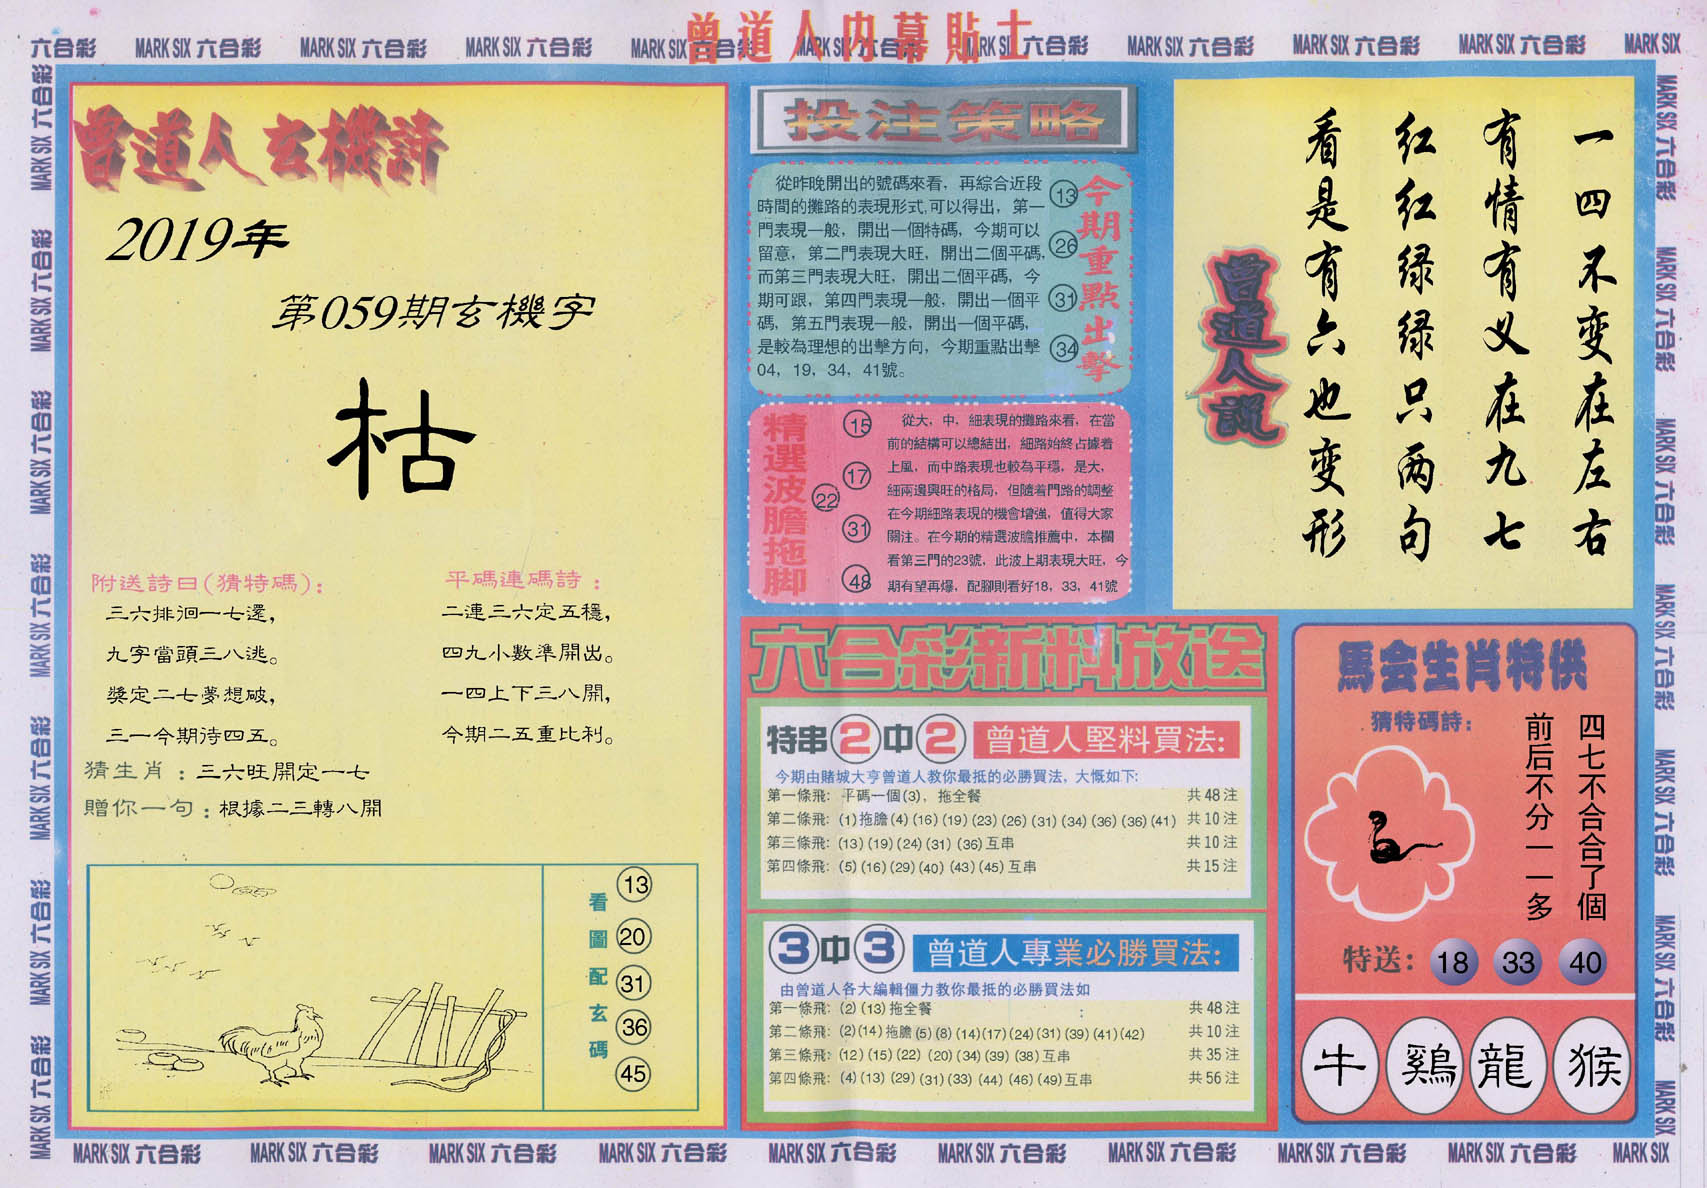 曾道人内幕貼士
六合彩 MARK SIX 六合彩 MARK SIX 六合彩 MARK SIX 六合彩 MARK SIX 六合彩 MARK SIX 六合彩 MARK SIX 六合彩 MARK SIX 六合彩 MARK SIX 六合彩 MARK SIX 六合彩 MARK SIX
曾道人玄機詩
2019年
第059期玄機字
枯
附送詩曰(猜特碼):
三六排徊一七還,
九字當頭三八逃。
獎定二七夢想破,
三一今期待四五。
平碼連碼詩:
二連三六定五穩,
四九小數準開出。
一四上下三八開,
今期二五重比利。
猜生肖:三六旺開定一七
贈你一句:根據二三轉八開
看圖配玄碼
13
20
31
36
45
投注策略
從昨晚開出的號碼來看,再綜合近段
時間的攤路的表現形式,可以得出,第一
門表現一般,開出一個特碼,今期可以
留意,第二門表現大旺,開出二個平碼,
而第三門表現大旺,開出二個平碼,今
期可跟,第四門表現一般,開出一個平
碼,第五門表現一般,開出一個平碼,
是較為理想的出擊方向,今期重點出擊
04,19,34,41號。
13
26
31
34
今期重點出擊
精選波膽拖脚
15
17
22
31
48
從大,中,細表現的攤路來看,在當
前的結構可以總結出,細路始終占據着
上風,而中路表現也較為平穩,是大,
細兩邊興旺的格局,但隨着門路的調整
在今期細路表現的機會增強,值得大家
關注。在今期的精選波膽推薦中,本欄
看第三門的23號,此波上期表現大旺,今
期有望再爆,配腳則看好18,33,41號
曾道人說
一四不变在左右
有情有义在九七
红红绿绿只两句
看是有六也变形
六合彩新料放送
特串2中2 曾道人堅料買法:
今期由賭城大亨曾道人教你最抵的必勝買法,大慨如下:
第一條飛: 平碼一個(3),拖全餐 共48注
第二條飛: (1)拖膽(4)(16)(19)(23)(26)(31)(34)(36)(36)(41) 共10注
第三條飛: (13)(19)(24)(31)(36)互串 共10注
第四條飛: (5)(16)(29)(40)(43)(45)互串 共15注
3中3 曾道人專業必勝買法:
由曾道人各大編輯僵力教你最抵的必勝買法如
第一條飛: (2)(13)拖全餐 共48注
第二條飛: (2)(14)拖膽(5)(8)(14)(17)(24)(31)(39)(41)(42) 共10注
第三條飛: (12)(15)(22)(20)(34)(39)(38)互串 共35注
第四條飛: (4)(13)(29)(31)(33)(44)(46)(49)互串 共56注
馬会生肖特供
猜特碼詩:
四七不合合了個
前后不分一一多
特送: 18 33 40
牛 鷄 龍 猴
MARK SIX 六合彩 MARK SIX 六合彩 MARK SIX 六合彩 MARK SIX 六合彩 MARK SIX 六合彩 MARK SIX 六合彩 MARK SIX 六合彩 MARK SIX 六合彩 MARK SIX 六合彩 MARK SIX